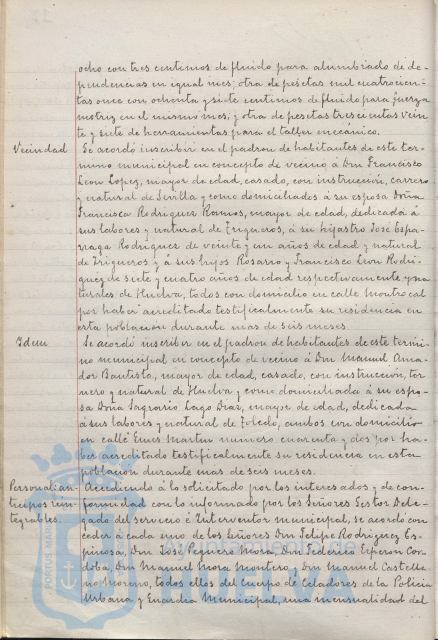 ocho con tres centimos de fluido para alumbrado de de-
pendencias en igual mes; otra de pesetas mil cuatrocien-
tas once con ochenta y siete centimos de fluido para fuerza
motriz en el mismo mes; y otra de pesetas trescientas vein-
te y siete de herramientas para el taller mecánico.
Vecindad Se acordó inscribir en el padron de habitantes de este ter-
mino municipal en concepto de vecino á Don Francisco
Leon Lopez, mayor de edad, casado, con instrucción, carrero
y natural de Sevilla y como domiciliados á su esposa Doña
Francisca Rodriguez Ramos, mayor de edad, dedicada á
sus labores y natural de Trigueros, á su hijastro José Espa-
rraga Rodriguez de veinte y un años de edad y natural
de Trigueros y á sus hijos Rosario y Francisco Leon Rodri-
guez de siete y cuatro años de edad respectivamente y na-
turales de Huelva, todos con domicilio en calle Montrocal
por haber acreditado testificalmente su residencia en
esta población durante mas de seis meses.
Idem Se acordó inscribir en el padron de habitantes de este termi-
no municipal en concepto de vecino á Don Manuel Ama-
dor Bautista, mayor de edad, casado, con instrucción, tor-
nero y natural de Huelva y como domiciliada á su espo-
sa Doña Sagrario Lago Diaz, mayor de edad, dedicada
á sus labores y natural de Toledo, ambos con domicilio
en calle Martin numero cuarenta y dos por ha-
ber acreditado testificalmente su residencia en esta
población durante mas de seis meses.
Personal: an- Accediendo á lo solicitado por los interesados y de con-
ticipos rein- formidad con lo informado por los Señores Gestor Dele-
tegrables. gado del servicio é Interventor municipal, se acordó con-
ceder á cada uno de los Señores Don Felipe Rodriguez Es-
pinosa, Don José Peguero Mora, Don Federico Cor-
doba, Don Manuel Mora Montero y Don Manuel Castella-
no Moreno, todos ellos del Cuerpo de Celadores de la Policia
Urbana y Guardia Municipal, una mensualidad del